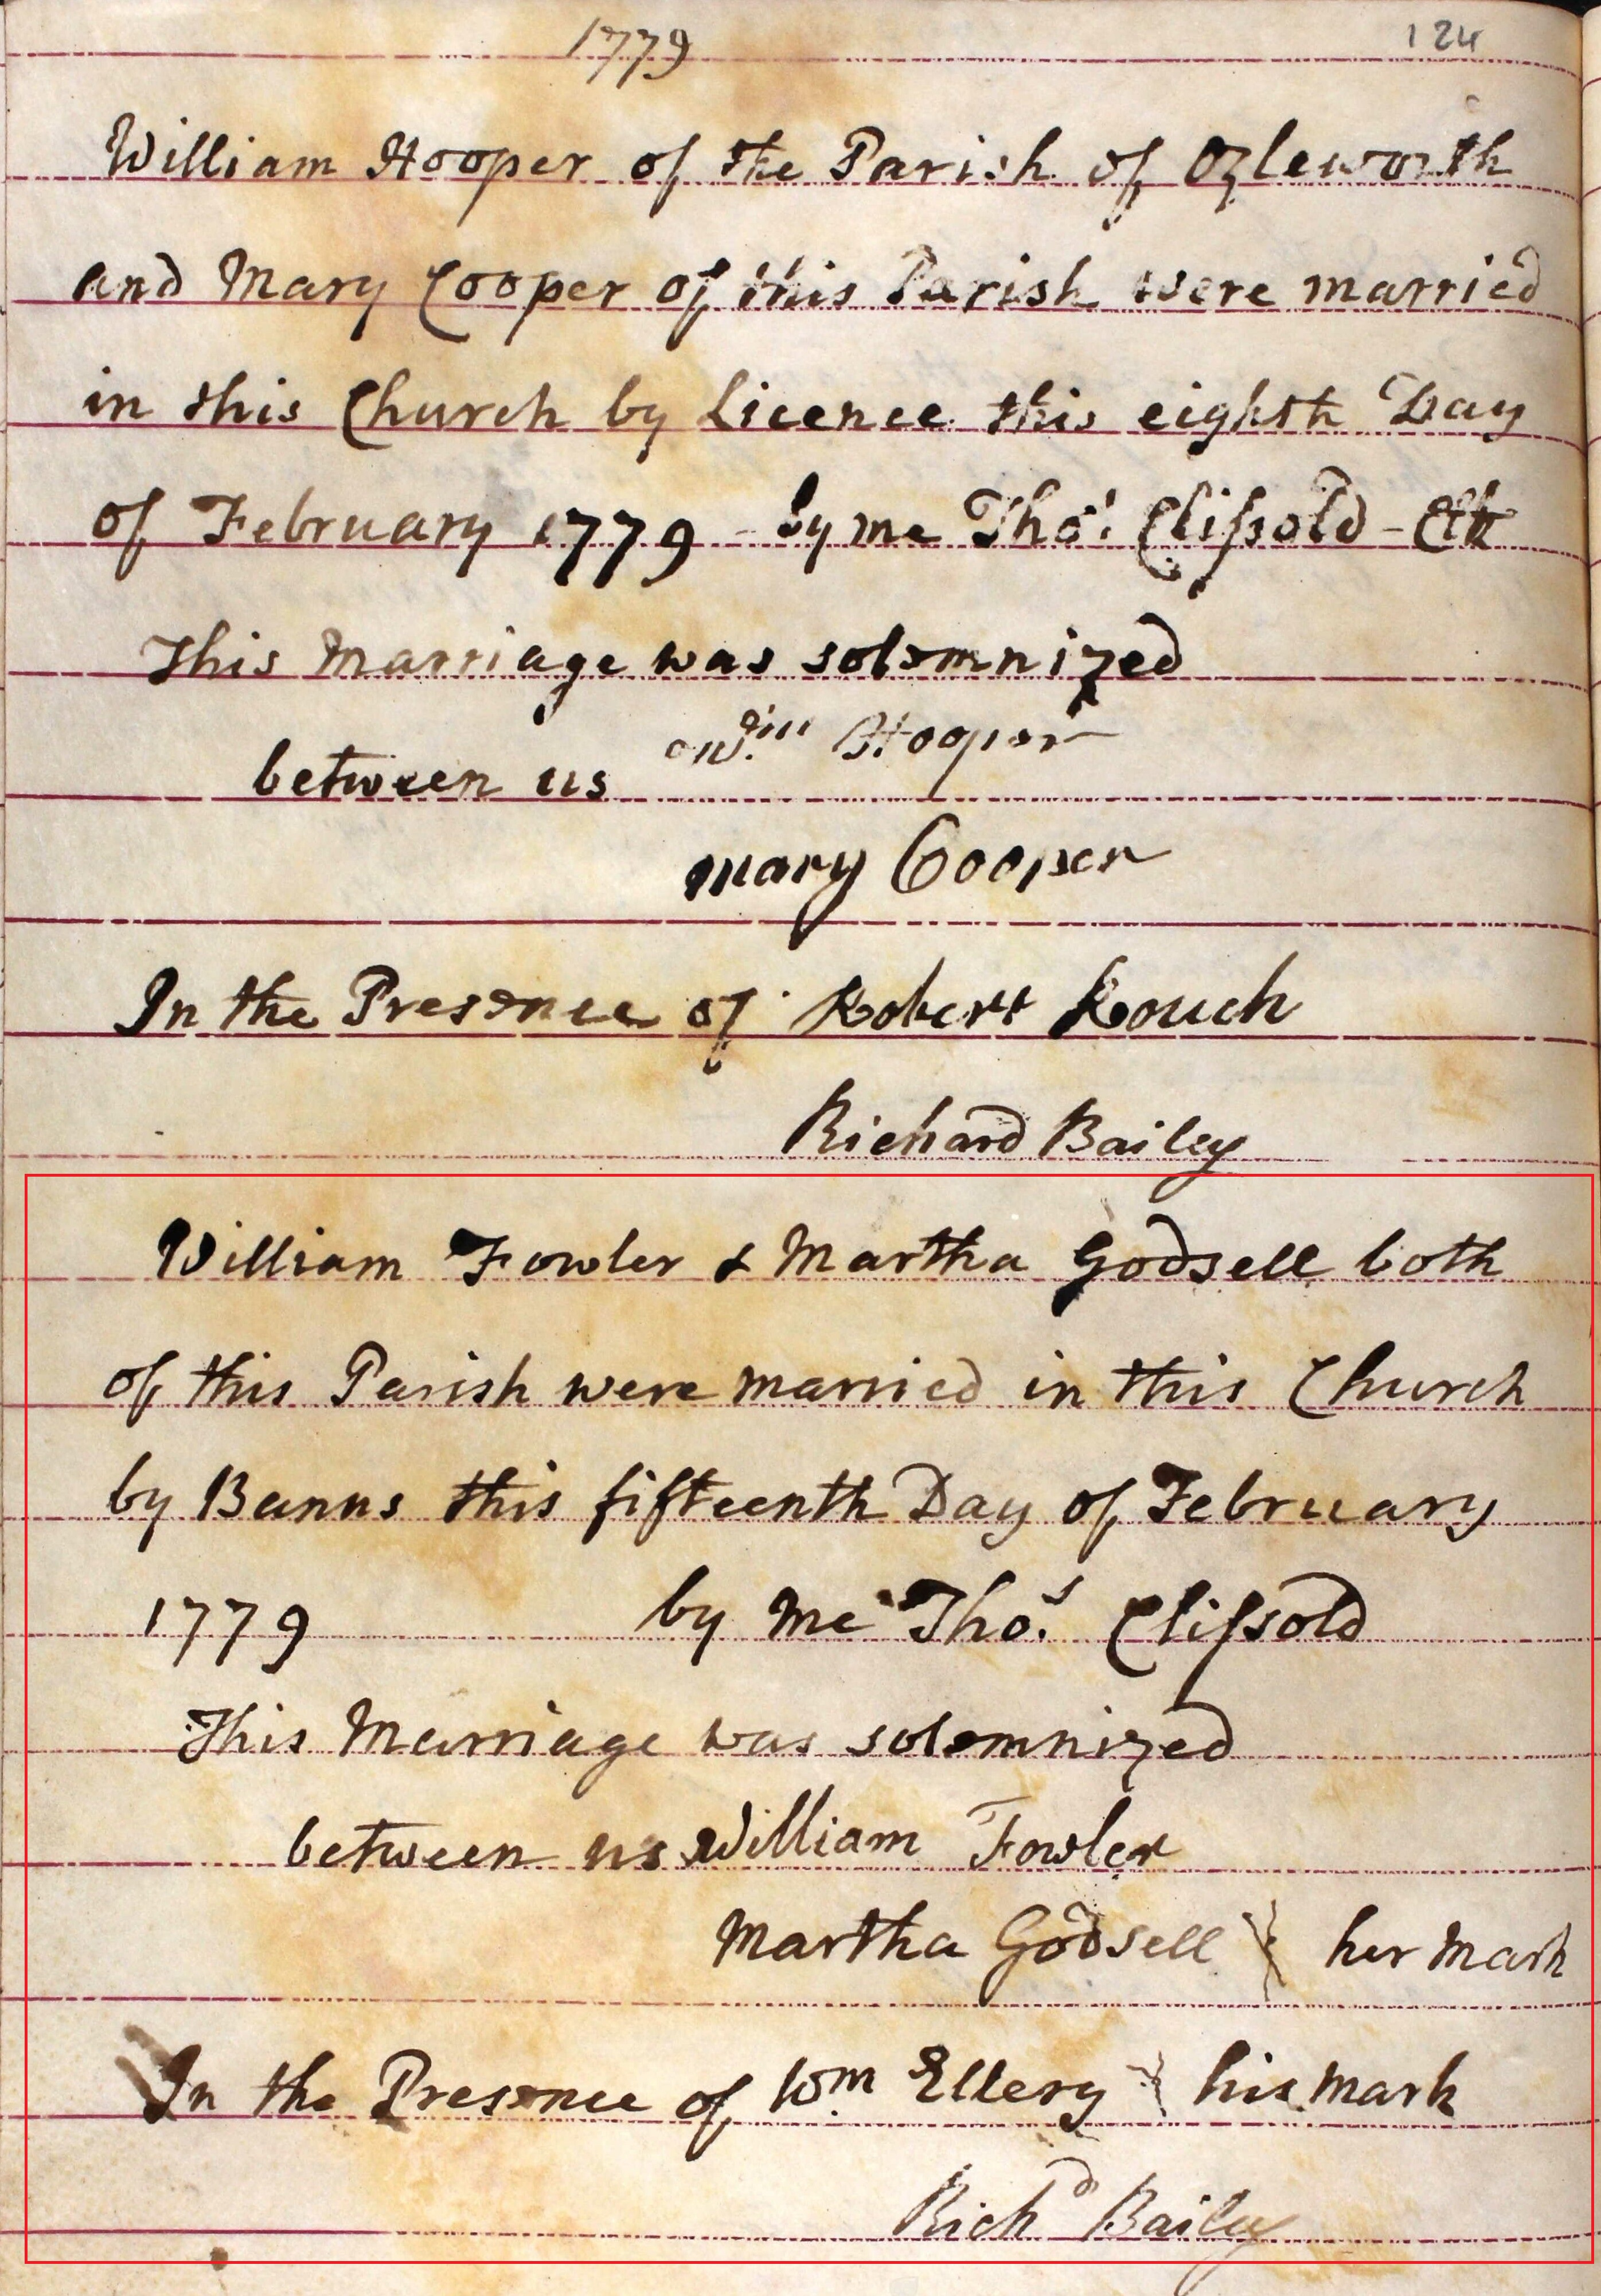 1779
124
William Hooper of the Parish of Ozleworth
and Mary Cooper of this Parish were married
in this Church by Licence this eighth Day
of February 1779 by me Thos. Clifsold - Clk
This Marriage was solemnized
between us Wm Hooper
mary Cooper
In the Presence of Robert Rouch
Richard Bailey
William Fowler & Martha Godsell both
of this Parish were married in this Church
by Banns this fifteenth Day of February
1779 by me Thos. Clifsold
This Marriage was solemnized
between us William Fowler
Martha Godsell her mark
In the Presence of Wm Ellery his mark
Richd Bailey